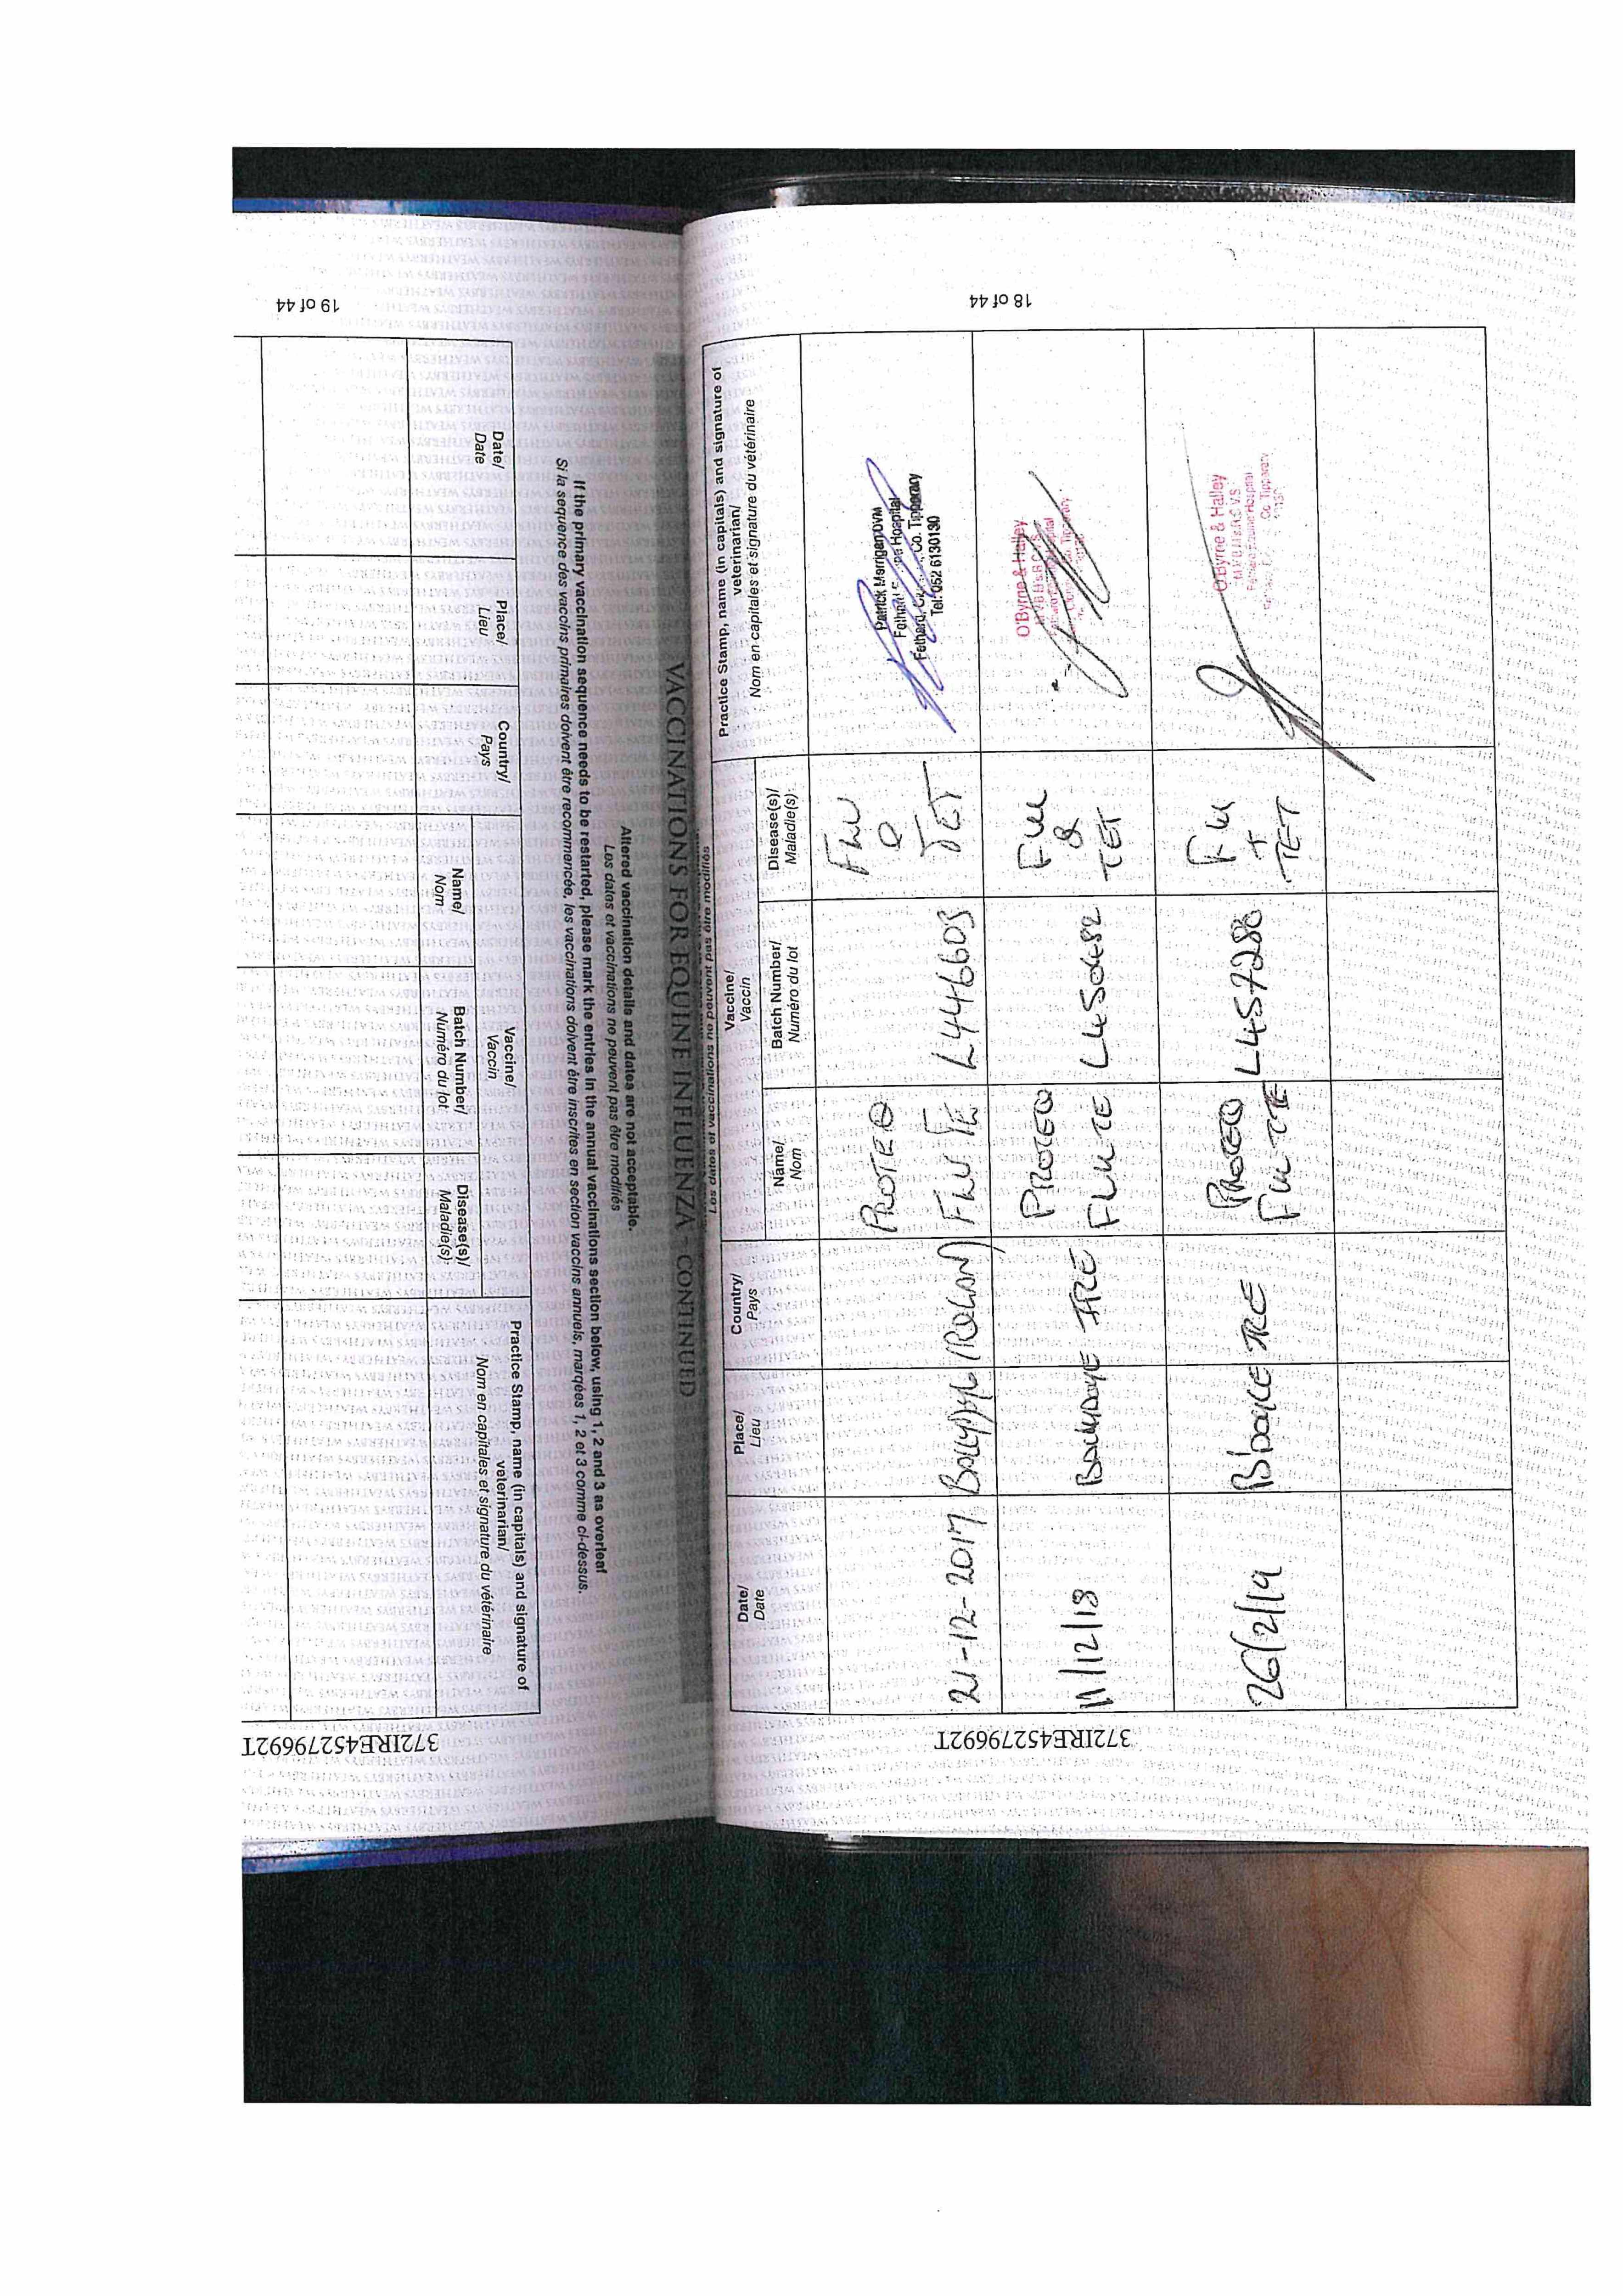 18 of 44
372IRE45279692T
Les dates et vaccinations ne peuvent pas être modifiés
Date/
Date
Place/
Lieu
Country/
Pays
Vaccine/
Vaccin
Name/
Nom
Batch Number/
Numéro du lot
Disease(s)/
Maladie(s)
Practice Stamp, name (in capitals) and signature of
veterinarian/
Nom en capitales et signature du vétérinaire
21-12-2017
PROTEQ
FLU TE
L446603
FLU
&
TET
Patrick Merrigan DVM
Fethard Hospital
Fethard, Co. Tipperary
Tel: 052 6130130
11/12/18
IRE
PROTEQ
FLU TE
FLU
&
TET
O'Byrne & Halley
26/2/19
IRE
PROTEQ
FLU TE
L457280
FLU
+
TET
O'Byrne & Halley
Co. Tipperary
VACCINATIONS FOR EQUINE INFLUENZA - CONTINUED
Altered vaccination details and dates are not acceptable.
Les dates et vaccinations ne peuvent pas être modifiés
If the primary vaccination sequence needs to be restarted, please mark the entries in the annual vaccinations section below, using 1, 2 and 3 as overleaf
Si la sequence des vaccins primaires doivent être recommencée, les vaccinations doivent être inscrites en section vaccins annuels, marqées 1, 2 et 3 comme ci-dessus.
Date/
Date
Place/
Lieu
Country/
Pays
Vaccine/
Vaccin
Name/
Nom
Batch Number/
Numéro du lot
Disease(s)/
Maladie(s)
Practice Stamp, name (in capitals) and signature of
veterinarian/
Nom en capitales et signature du vétérinaire
19 of 44
372IRE45279692T